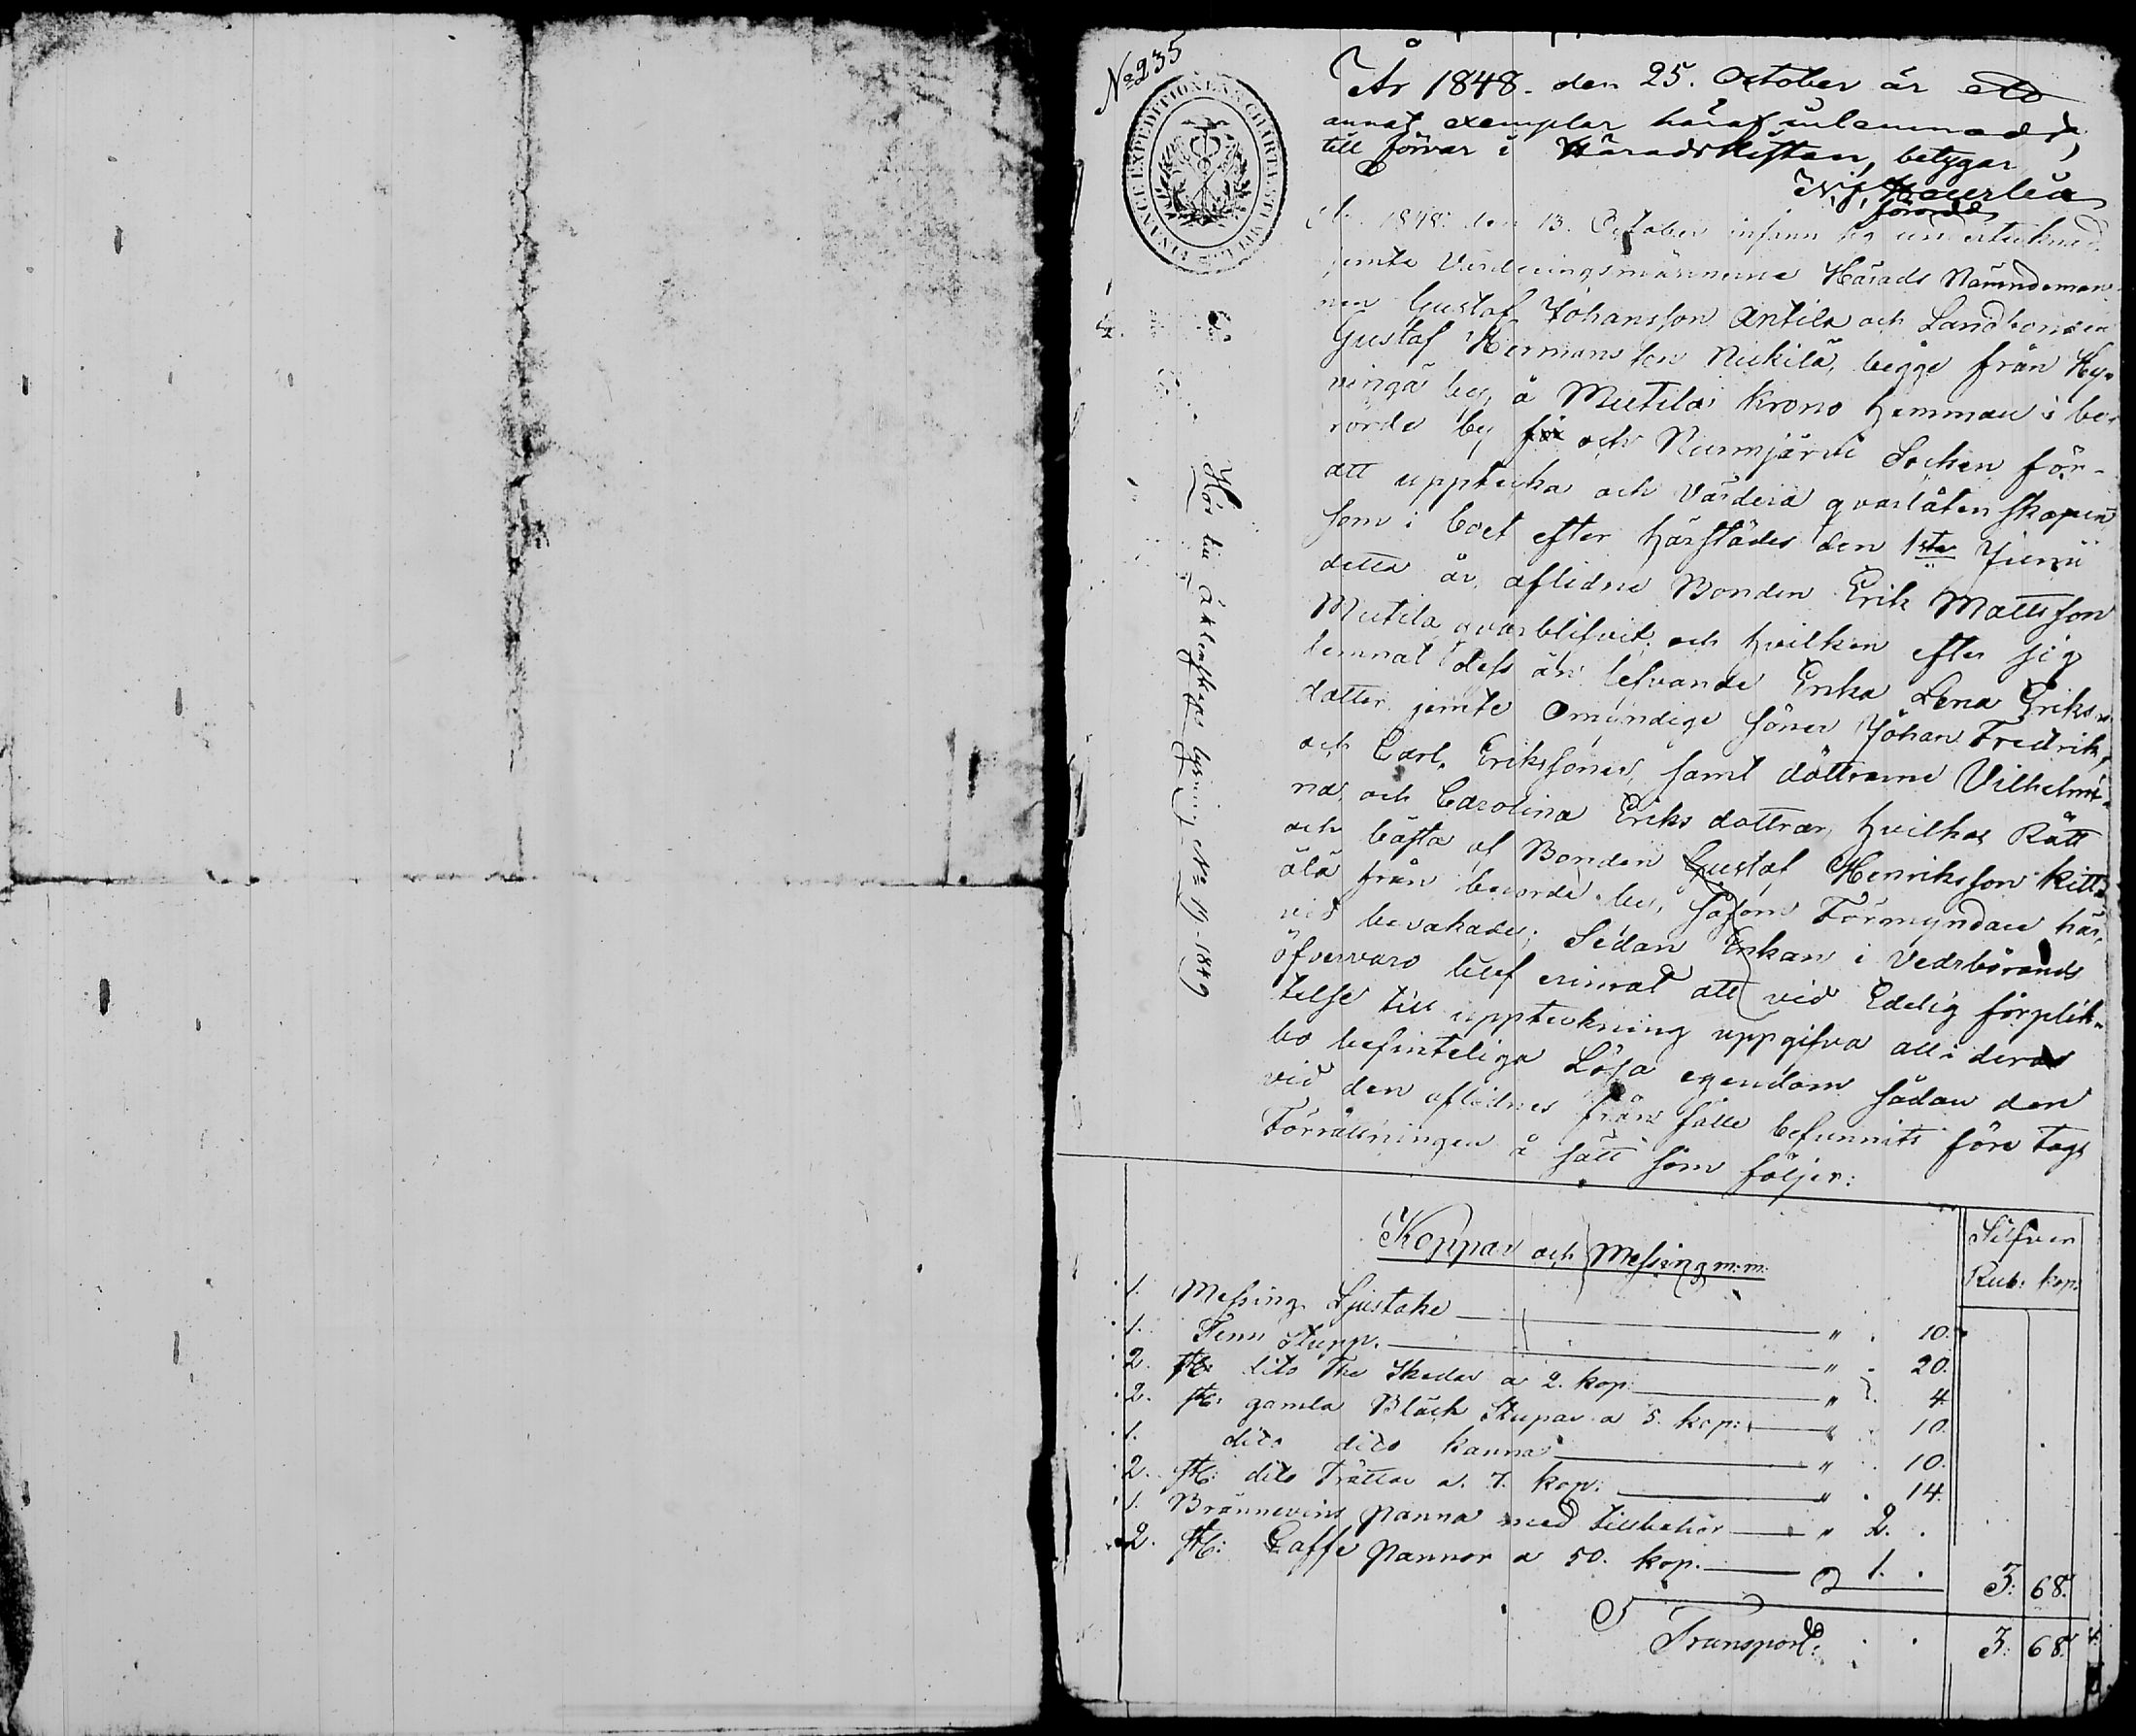 No 235
År 1848. den 25. October är ett
annat exemplar häraf inlemnadt
till förvar i Häradskistan, betygar
FINANCE EXPEDITIONENS CHARTÆ
År 1848. den 13. October infann sig undertecknad
jemte Värderingsmännerne Härads Nämndeman-
nen Gustaf Johansson Antila och Landbonden
Gustaf Hermansson Nickilä, begge från Hy-
vingä by, å Mutila Krono hemman i be-
rörde by för och Nurmjärvi Socken för-
att uppteckna och värdera qvarlåtenskapen
som i boet efter härstädes den 1sta Junii
detta år, aflidne Bonden Erik Mattsson
Mutila qvarblifvit, och hvilken efter sig
lemnat dess än lefvande Enka Lena Eriks-
dotter jemte omyndige söner Johan Fredrik,
och Carl, Erikssöner, samt döttrarne Vilhelmi-
na, och Carolina Eriks döttrar, hvilkas Rätt
och bästa af Bonden Gustaf Henriksson Kitt-
älä från berörde by, såsom Förmyndare här-
vid bevakade; Sedan Enkan i vederbörande
öfvervaro blef erinrad att vid Edelig förplik-
telse till uppteckning uppgifva all i deras
bo befinteliga Lösa egendom sådan den
vid den aflidnes frånfälle befunnits före togs
Förrättningen å sätt som följer:
Hör till Åklenskaps lysning No 17-1849
Koppar och Messing m.m.
Silfver
Rub. kop.
1. Messing Ljustake " . 10.
1. Tenn Stupp. " . 20.
2. st: dito The Skedar a 2. kop. " . 4.
2. st: gamla Bläck Stupar a 5. kop: " . 10.
1. dito dito kanna " . 10.
2. st: dito Trattar a. 7. kop. " . 14.
1. Brännevins panna med tillbehör " 2. .
2. st: Caffe pannor a 50. kop. 1. .
3: 68.
Transport: 3: 68.